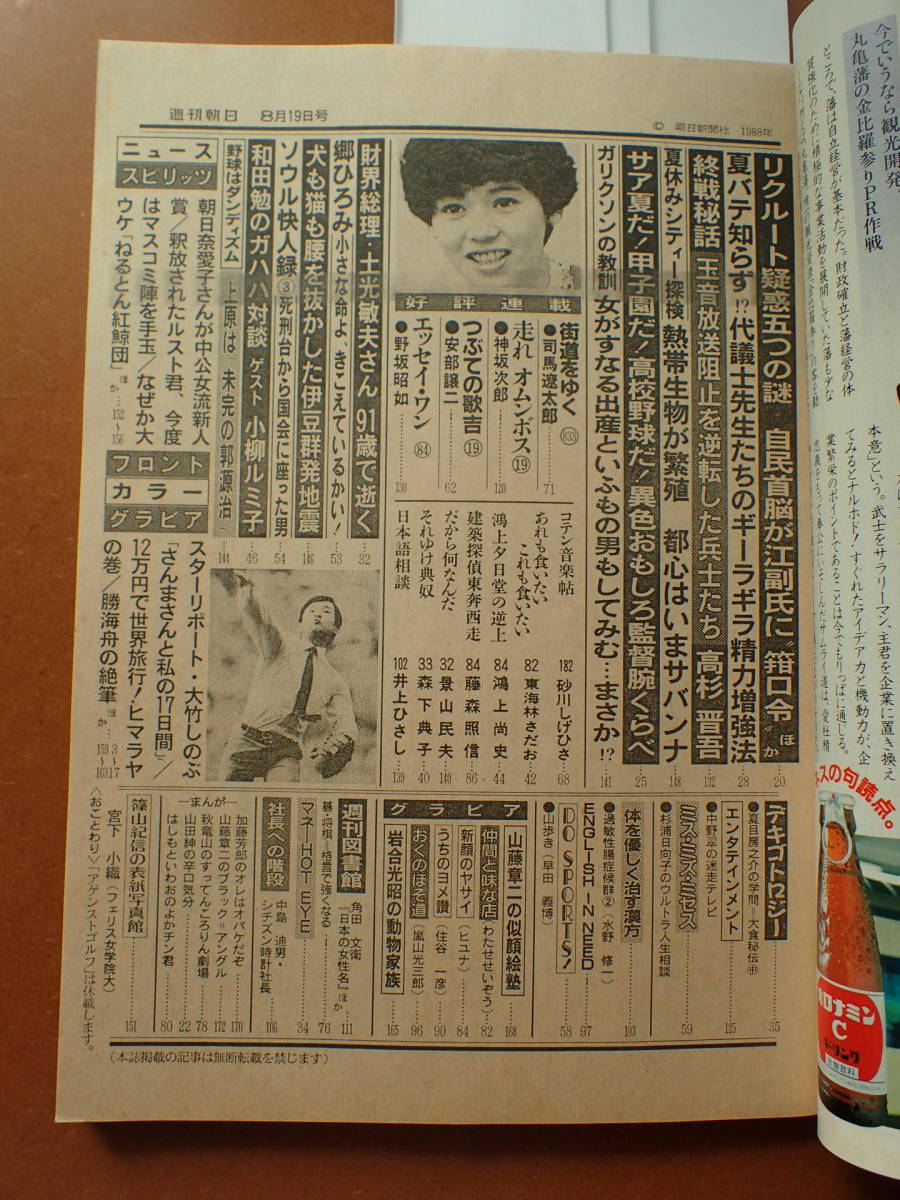 週刊朝日 8月19日号
© 朝日新聞社 1988年
リクルート疑惑五つの謎 自民首脳が江副氏に“箝口令” ほか 20
夏バテ知らず!?代議士先生たちのギーラギラ精力増強法 28
終戦秘話 玉音放送阻止を逆転した兵士たち 高杉晋吾 132
夏休みシティー探検 熱帯生物が繁殖 都心はいまサバンナ 148
サア夏だ!甲子園だ!高校野球だ!異色おもしろ監督腕くらべ 25
ガリクソンの教訓 女がすなる出産といふもの男もしてみむ…まさか!? 141
好評連載
街道をゆく 833
●司馬遼太郎 71
走れオムンボス ⑲
●神坂次郎 120
つぶての歌吉 ⑲
●安部譲二 62
エッセイ・ワン 84
●野坂昭如 130
コテン音楽帖 182 砂川しげひさ 68
あれも食いたい これも食いたい 82 東海林さだお 42
鴻上夕日堂の逆上 84 鴻上尚史 44
建築探偵東奔西走 84 藤森照信 86
だから何なんだ 32 景山民夫 140
それゆけ典奴 33 森下典子 40
日本語相談 102 井上ひさし 139
財界総理・土光敏夫さん 91歳で逝く 32
郷ひろみ 小さな命よ、きこえているかい! 53
犬も猫も腰を抜かした伊豆群発地震 146
ソウル快人録 ③ 死刑台から国会に座った男 54
和田勉のガハハ対談 ゲスト 小柳ルミ子 46
野球はダンディズム 上原は“未完の郭源治” 144
ニュース
スピリッツ
朝日奈愛子さんが中公女流新人
賞/釈放されたルスト君、今度
はマスコミ陣を手玉/なぜか大
ウケ「ねるとん紅鯨団」 ほか 152〜156
フロント
カラー
グラビア
スターリポート・大竹しのぶ
「さんまさんと私の17日間」/
12万円で世界旅行!ヒマラヤ
の巻/勝海舟の絶筆 ほか 3〜17 159〜163
デキゴトロジー 35
●夏目房之介の学問=大食秘伝㊥
エンタテインメント 125
●中野翠の迷走テレビ
ミズ・ミス・ミセス 59
●杉浦日向子のウルトラ人生相談
体を優しく治す漢方 103
●過敏性腸症候群2(水野修一)
ENGLISH IN NEED 97
DO SPORTS! 58
●山歩き(早田義博)
グラビア
山藤章二の似顔絵塾 168
仲間と味な店 わたせせいぞう) 82
新顔のヤサイ (ヒユナ) 84
うちのヨメ讃 (住谷一彦) 90
おくのほそ道 (嵐山光三郎) 96
岩合光昭の動物家族 165
週刊図書館 111
角田文衛『日本の女性名』ほか
碁・将棋─格言で強くなる 76
マネーHOT EYE 34
社長への階段 106
中島迪男・シチズン時計社長
─まんが─
加藤芳郎のオレはオバケだぞ 170
山藤章二のブラック=アングル 172
秋竜山のすってんころりん劇場 78
山田紳の辛口気分 22
はしもといわおのよかチン君 80
篠山紀信の表紙写真館 151
宮下小織(フェリス女学院大)
<おことわり>「アゲンストゴルフ」は休載します。
(本誌掲載の記事は無断転載を禁じます)
今でいうなら観光開発
丸亀藩の金比羅参りPR作戦
ところで、藩は自立経営が基本だった。財政確立と藩経営の体
本意」という。武士をサラリーマン、主君を企業に置き換え
てみるとナルホド!すぐれたアイデア力と機動力が、企
業繁栄のポイントであることは今でもりっぱに通じる。
スの句読点。
ロナミン
C
ドリンク
炭酸飲料